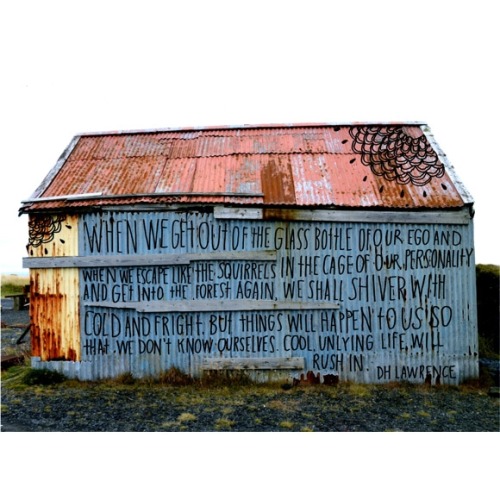 WHEN WE GET OUT OF THE GLASS BOTTLE OF OUR EGO AND
WHEN WE ESCAPE LIKE THE SQUIRRELS IN THE CAGE OF OUR PERSONALITY
AND GET INTO THE FOREST AGAIN, WE SHALL SHIVER WITH
COLD AND FRIGHT. BUT THINGS WILL HAPPEN TO US SO
THAT WE DON'T KNOW OURSELVES. COOL, UNLYING LIFE WILL
RUSH IN. DH LAWRENCE